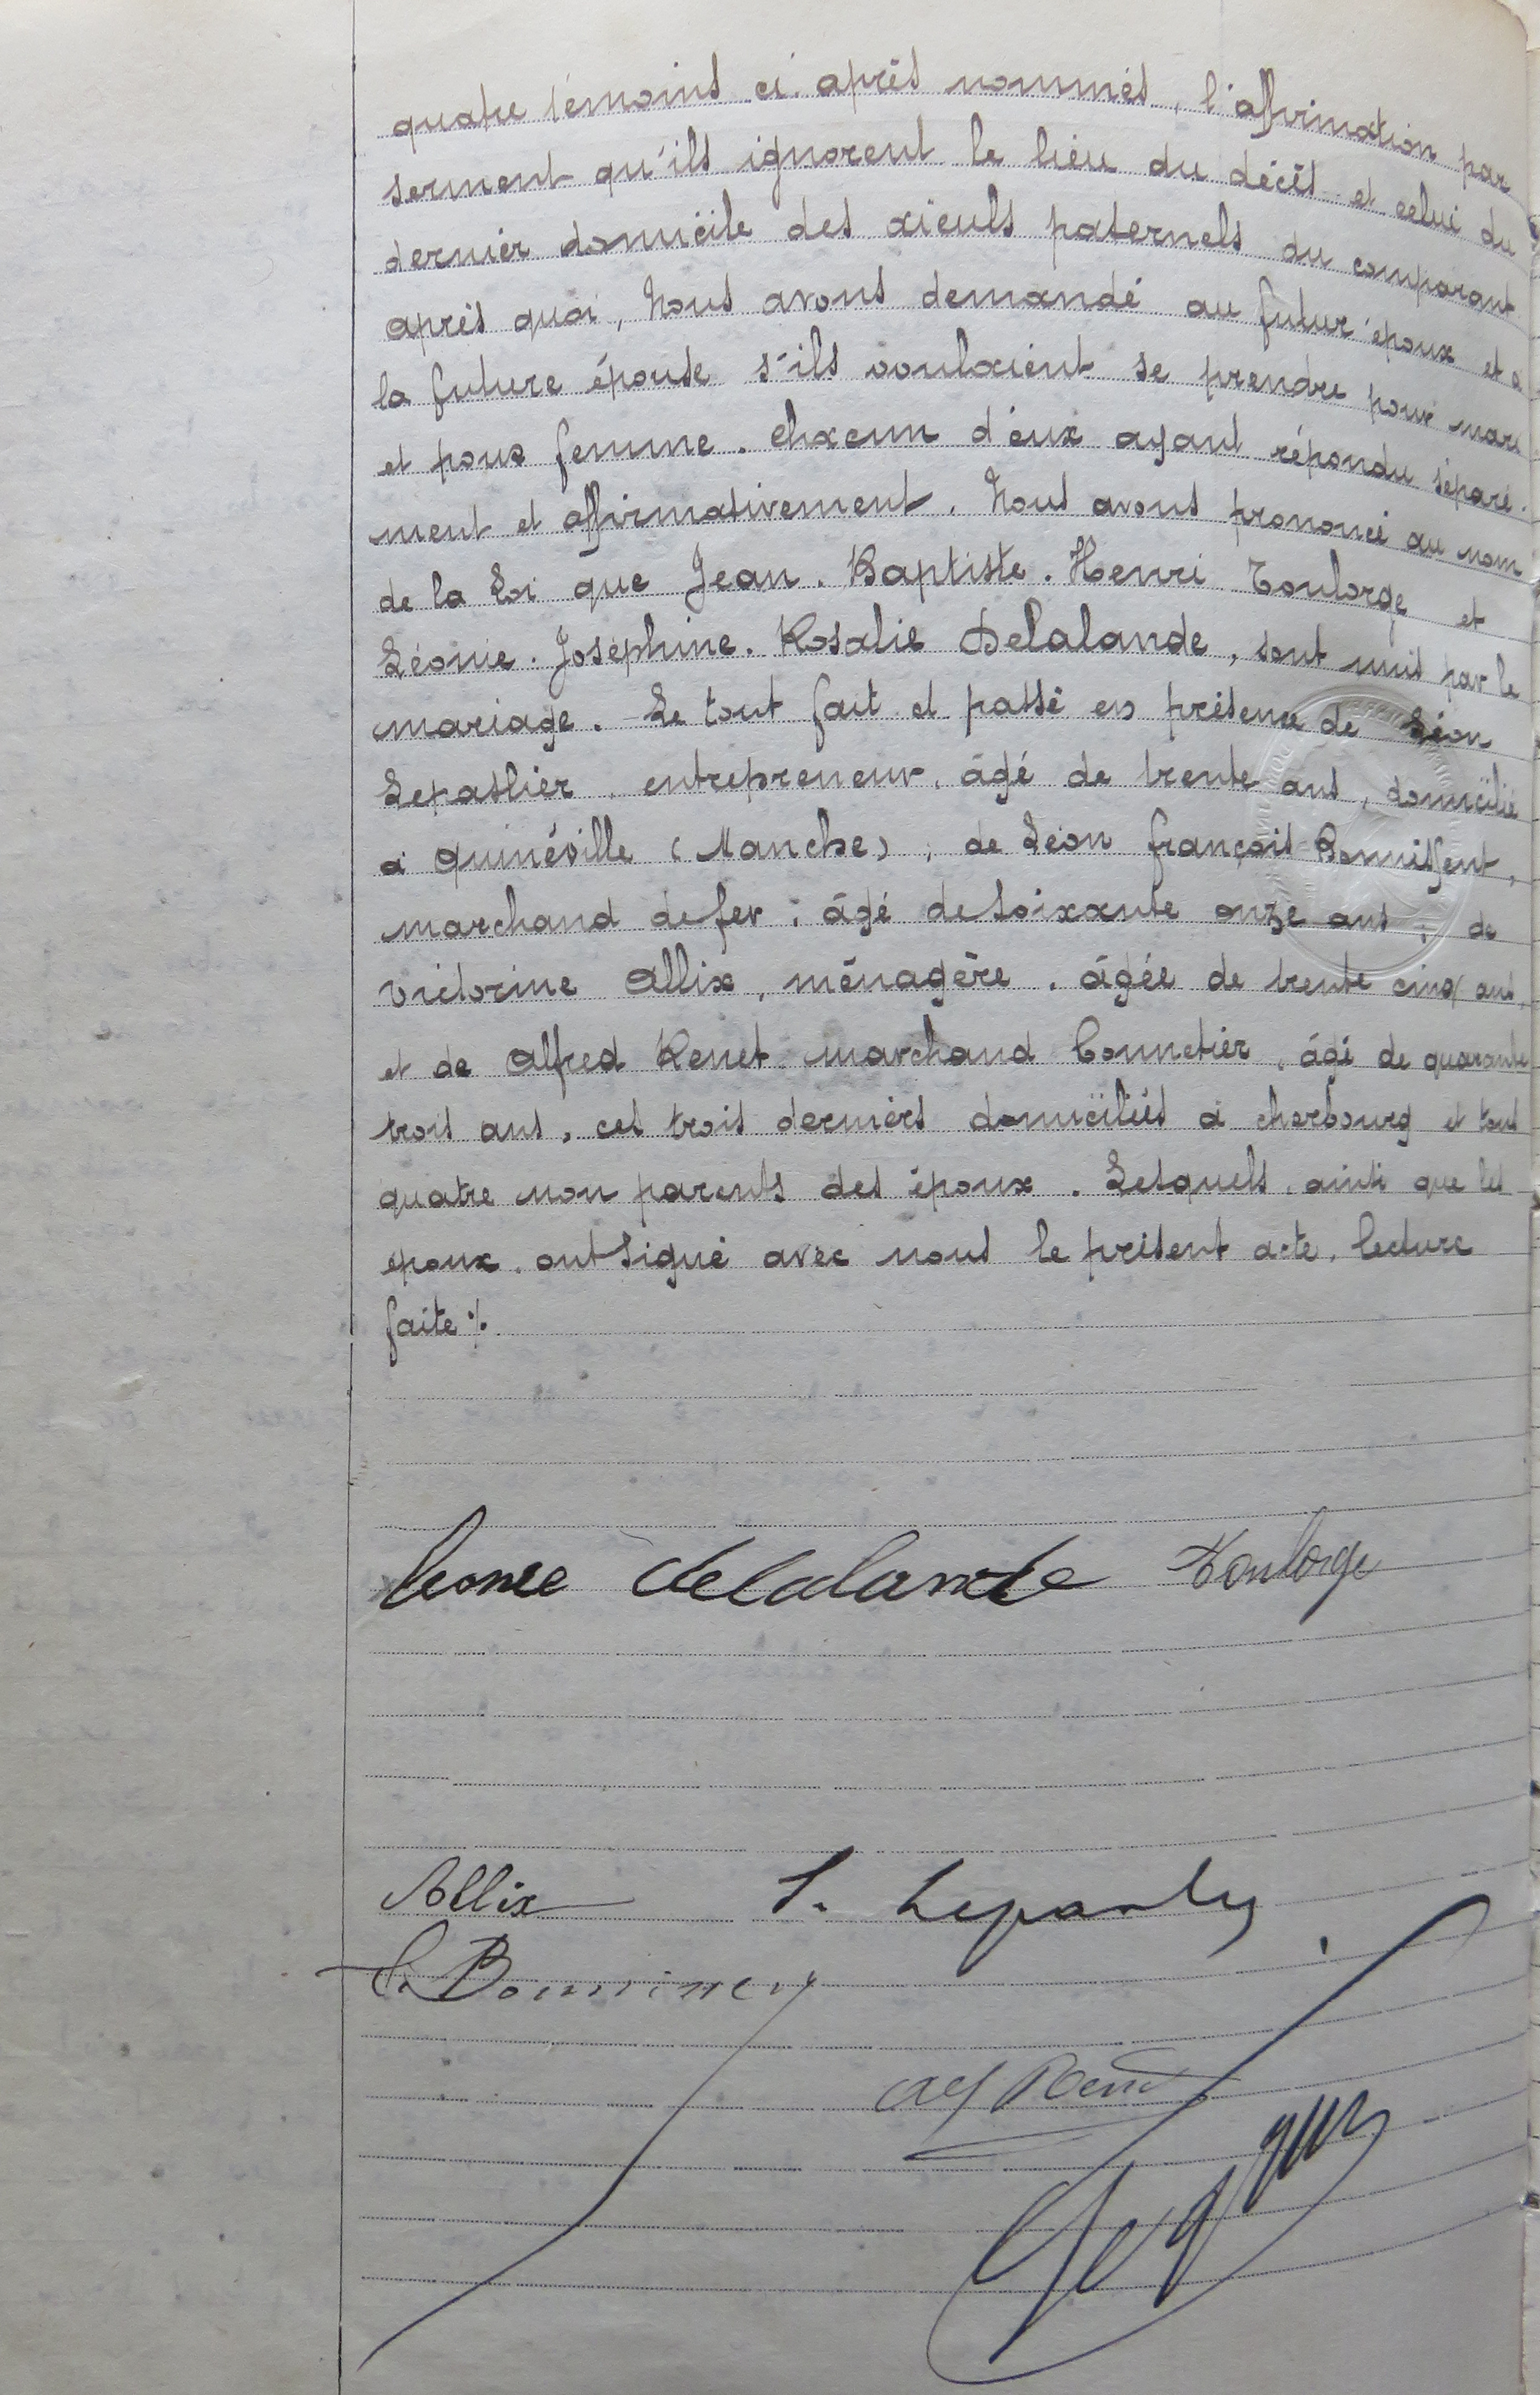 quatre témoins ci-après nommés, l'affirmation par
serment qu'ils ignorent le lieu du décès et celui du
dernier domicile des aïeuls paternels du comparant
après quoi, Nous avons demandé au futur époux et à
la future épouse s'ils voulaient se prendre pour mari
et pour femme. Chacun d'eux ayant répondu séparé-
ment et affirmativement, Nous avons prononcé au nom
de la Loi que Jean-Baptiste-Henri Toulorge et
Léonie-Joséphine-Rosalie Delalande, sont unis par le
mariage. Le tout fait et passé en présence de Léon
entrepreneur, âgé de trente ans, domicilié
à Quinéville (Manche), de Léon François Bonnissent,
marchand de fer, âgé de soixante onze ans, de
Victorine Allix, ménagère, âgée de trente cinq ans,
et de Alfred Renet marchand bonnetier, âgé de quarante
trois ans, ces trois derniers domiciliés à cherbourg et tous
quatre non parents des époux. Lesquels, ainsi que les
époux, ont signé avec nous le présent acte, lecture
faite ./.
Leonie delalande Toulorge
Allix